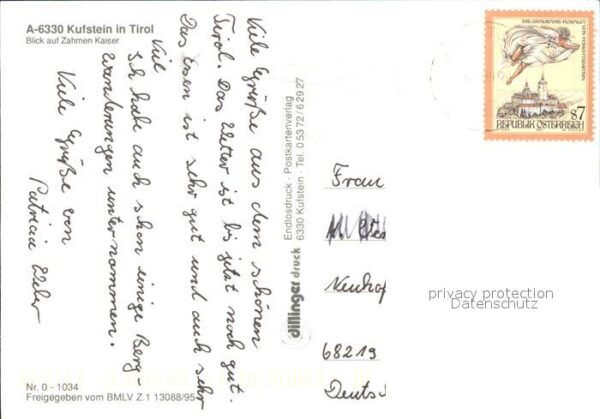 A-6330 Kufstein in Tirol
Blick auf Zahmen Kaiser
Viele Grüße aus dem schönen
Tirol. Das Wetter ist bis jetzt noch gut.
Das Essen ist sehr gut und auch sehr
viel
Ich habe auch schon einige Berg-
wanderungen unternommen.
Viele Grüße von
Patricia
Nr. 0 - 1034
Freigegeben vom BMLV Z.1 13088/95-
dillinger druck
Endlosdruck · Postkartenverlag
6330 Kufstein · Tel. 0 53 72 / 6 29 27
VON FORCHTENSTEIN
s7
REPUBLIK ÖSTERREICH
Frau
Neuhof
68219
Deuts
privacy protection
Datenschutz